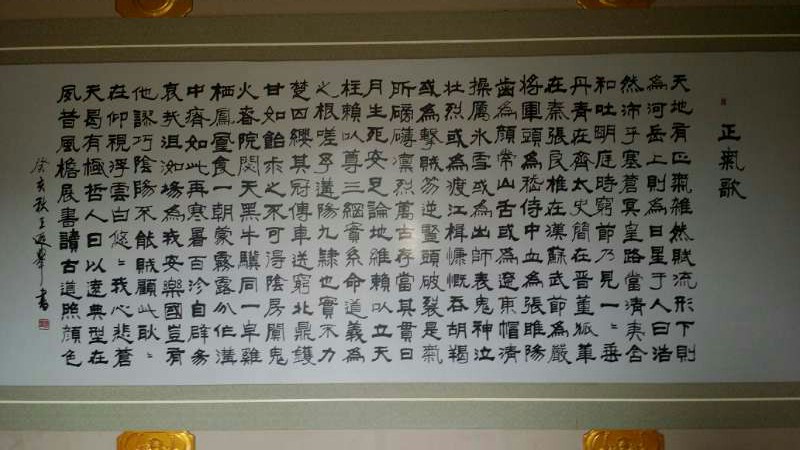 正氣歌
天地有正氣雜然賦流形下則
為河岳上則為日星于人曰浩
然沛乎塞蒼冥皇路當清夷含
和吐明庭時窮節乃見一〻垂
丹青在齊太史簡在晉董狐筆
在秦張良椎在漢蘇武節為嚴
將軍頭為嵇侍中血為張睢陽
齒為顏常山舌或為遼東帽清
操厲冰雪或為出師表鬼神泣
壯烈或為渡江楫慷慨吞胡羯
或為擊賊笏逆豎頭破裂是氣
所磅礴凜烈萬古存當其貫日
月生死安足論地維賴以立天
柱賴以尊三綱實系命道義為
之根嗟予遘陽九隸也實不力
楚囚纓其冠傳車送窮北鼎鑊
甘如飴求之不可得陰房闃鬼
火春院閟天黑牛驥同一皁雞
栖鳳凰食一朝蒙霧露分作溝
中瘠如此再寒暑百沴自辟易
哀哉沮洳場為我安樂國豈有
他謬巧陰陽不能賊顧此耿〻
在仰視浮雲白悠〻我心悲蒼
天曷有極哲人日以遠典型在
夙昔風檐展書讀古道照顏色
癸亥秋王 書